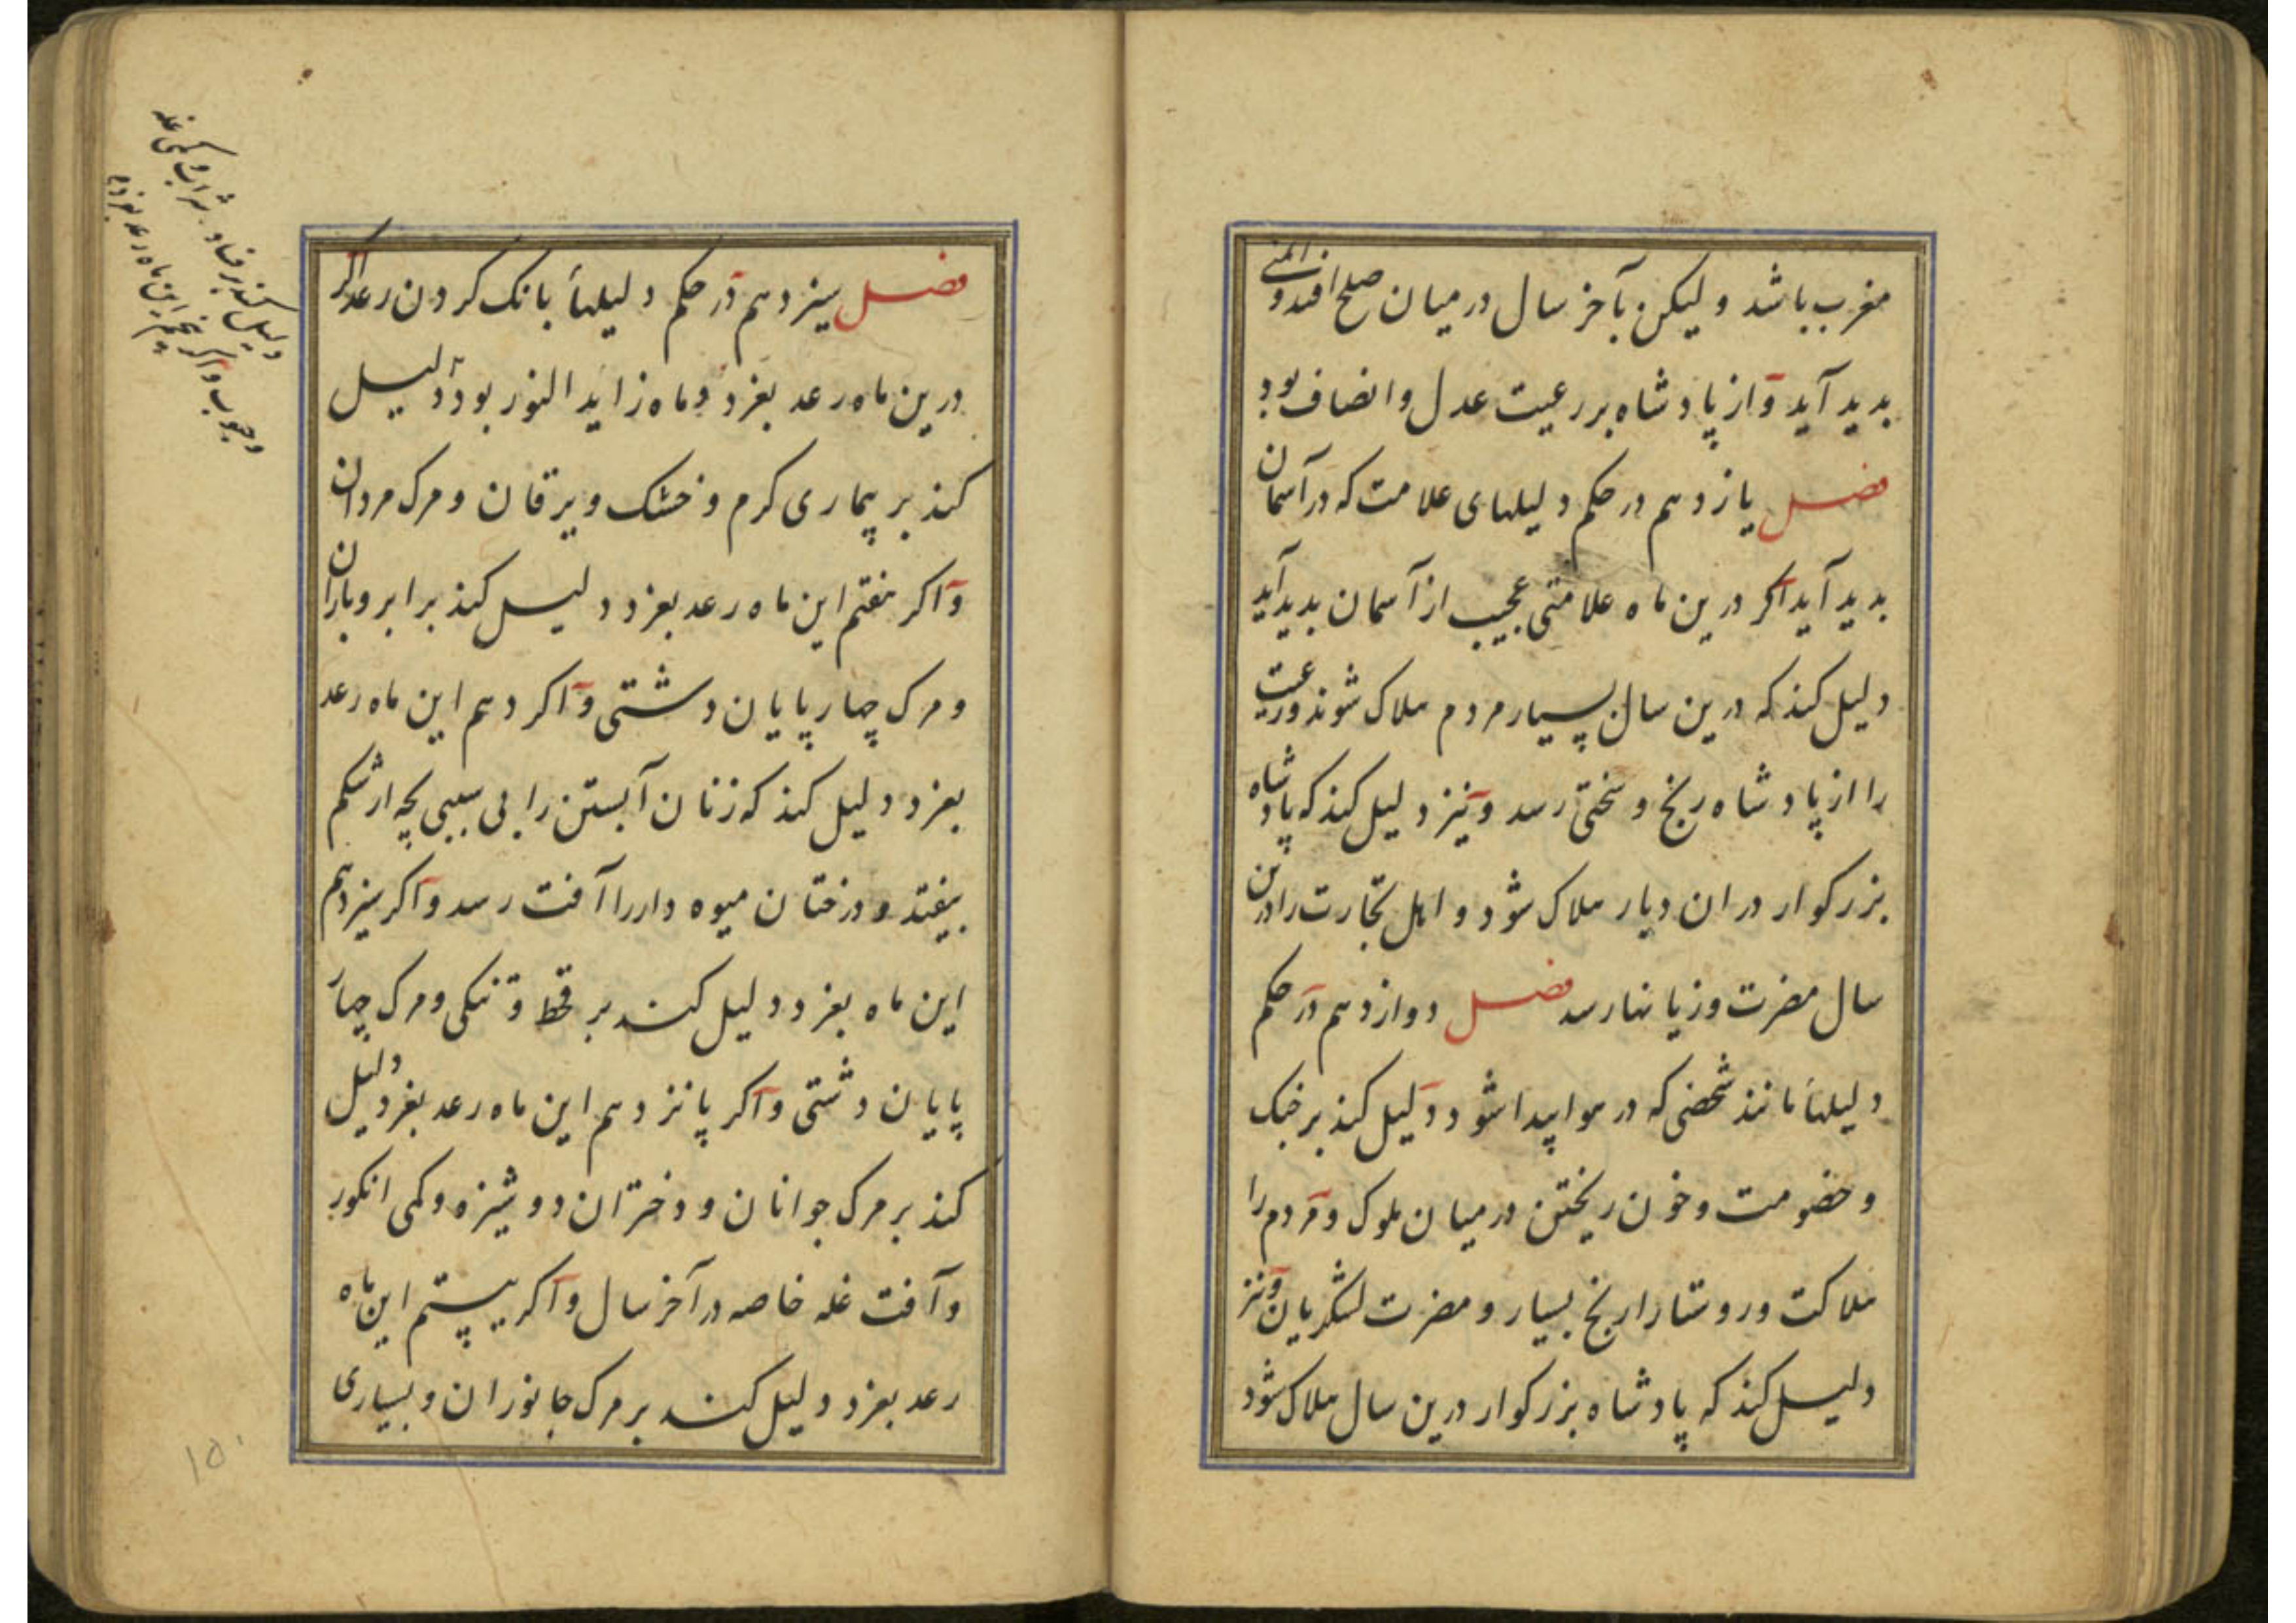 مغرب باشد ولیکن بآخر سال در میان صلح افتد و ایمنی
بدید آید و از پادشاه بر رعیت عدل و انصاف بود
فصل یازدهم در حکم دلیلهای علامت که در آسمان
بدید آید اکر درین ماه علامتی عجیب از آسمان بدید آید
دلیل کند که درین سال بسیار مردم هلاک شوند و رعیت
را از پادشاه رنج و سختی رسد و نیز دلیل کند که پادشاه
بزرکوار در ان دیار هلاک شود و اهل تجارت را درین
سال مضرت و زیانها رسد فصل دوازدهم در حکم
دلیلها مانند شخصی که در هوا پیدا شود دلیل کند بر جنک
و خصومت و خون ریختن در میان ملوک و مردم را
هلاکت و روستا را رنج بسیار و مضرت لشکریان و نیز
دلیل کند که پادشاه بزرکوار درین سال هلاک شود
فصل سیزدهم در حکم دلیلها بانک کردن رعد اکر
درین ماه رعد بغرد و ماه زاید النور بود دلیل
کند بر بیماری کرم و خشک و یرقان و مرک مردان
و اکر هفتم این ماه رعد بغرد دلیل کند بر ابر و باران
و مرک چهار پایان دشتی و اکر دهم این ماه رعد
بغرد دلیل کند که زنان آبستن را بی سببی بچه از شکم
بیفتد و درختان میوه دار را آفت رسد و اکر سیزدهم
این ماه بغرد دلیل کند بر قحط و تنکی و مرک چهار
پایان دشتی و اکر پانزدهم این ماه رعد بغرد دلیل
کند بر مرک جوانان و دختران دوشیزه و کمی انکور
و آفت غله خاصه در آخر سال و اکر بیستم این ماه
رعد بغرد دلیل کند بر مرک جانوران و بسیاری
دلیل کند بر فساد شراب و کمی غله
و حبوب و اکر پنجم این ماه رعد بغرد
۱۵۰